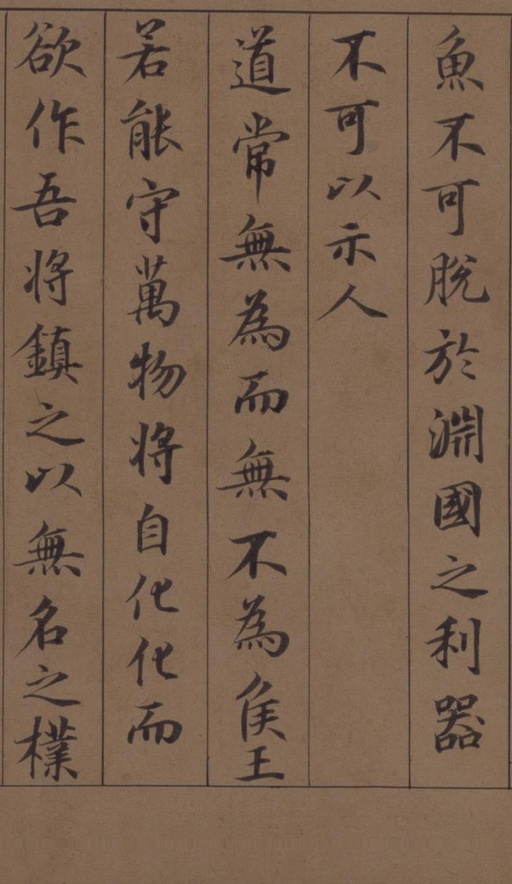 魚不可脫於淵國之利器
不可以示人
道常無為而無不為侯王
若能守萬物將自化化而
欲作吾將鎮之以無名之樸